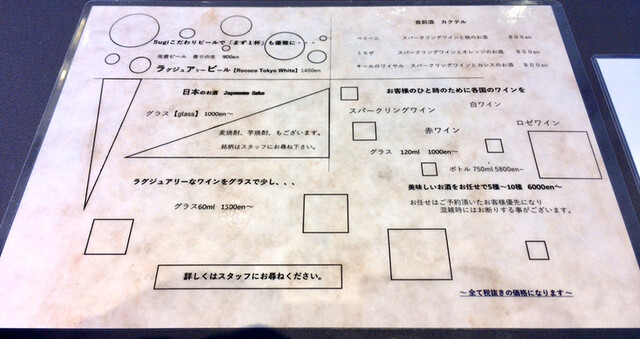 Sugiこだわりビールで「まず1杯」も優雅に・・・
佐倉ビール 香りの生 900en
ラグジュアリービール【Rococo Tokyo White】1400en
食前酒 カクテル
ベリーニ スパークリングワインと桃のお酒 800en
ミモザ スパークリングワインとオレンジのお酒 800en
キールロワイヤル スパークリングワインとカシスのお酒 800en
日本のお酒 Japanese Sake
グラス【glass】 1000en~
麦焼酎、芋焼酎、もございます。
銘柄はスタッフにお尋ね下さい。
ラグジュアリーなワインをグラスで少し、、、
グラス60ml 1500en~
詳しくはスタッフにお尋ねください。
お客様のひと時のために各国のワインを
スパークリングワイン 白ワイン
赤ワイン ロゼワイン
グラス 120ml 1000en~
ボトル 750ml 5800en~
美味しいお酒をお任せで5種~10種 6000en~
お任せはご予約頂いたお客様優先になり
混雑時にはお断りする事がございます。
~全て税抜きの価格になります~